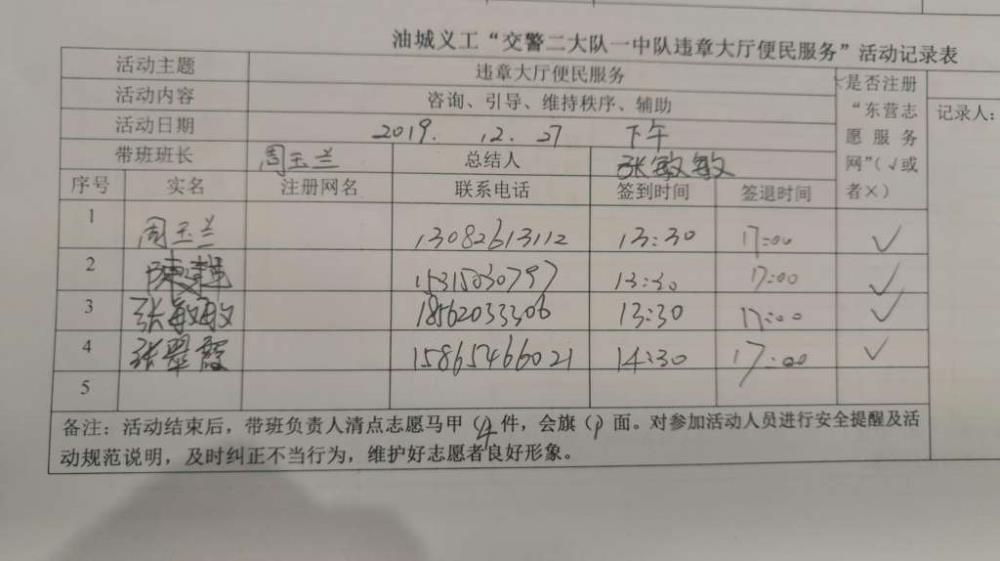 油城义工“交警二大队一中队违章大厅便民服务”活动记录表
活动主题 违章大厅便民服务 是否注册“东营志愿服务网”(√或者×) 记录人:
活动内容 咨询、引导、维持秩序、辅助
活动日期 2019. 12. 27 下午
带班班长 周玉兰 总结人 张敏敏
序号 实名 注册网名 联系电话 签到时间 签退时间
1 周玉兰 13082613112 13:30 17:00 √
2 13:30 17:00 √
3 张敏敏 18562033306 13:30 17:00 √
4 张翠霞 15865466021 14:30 17:00 √
5
备注:活动结束后,带班负责人清点志愿马甲(4件,会旗(1)面。对参加活动人员进行安全提醒及活
动规范说明,及时纠正不当行为,维护好志愿者良好形象。